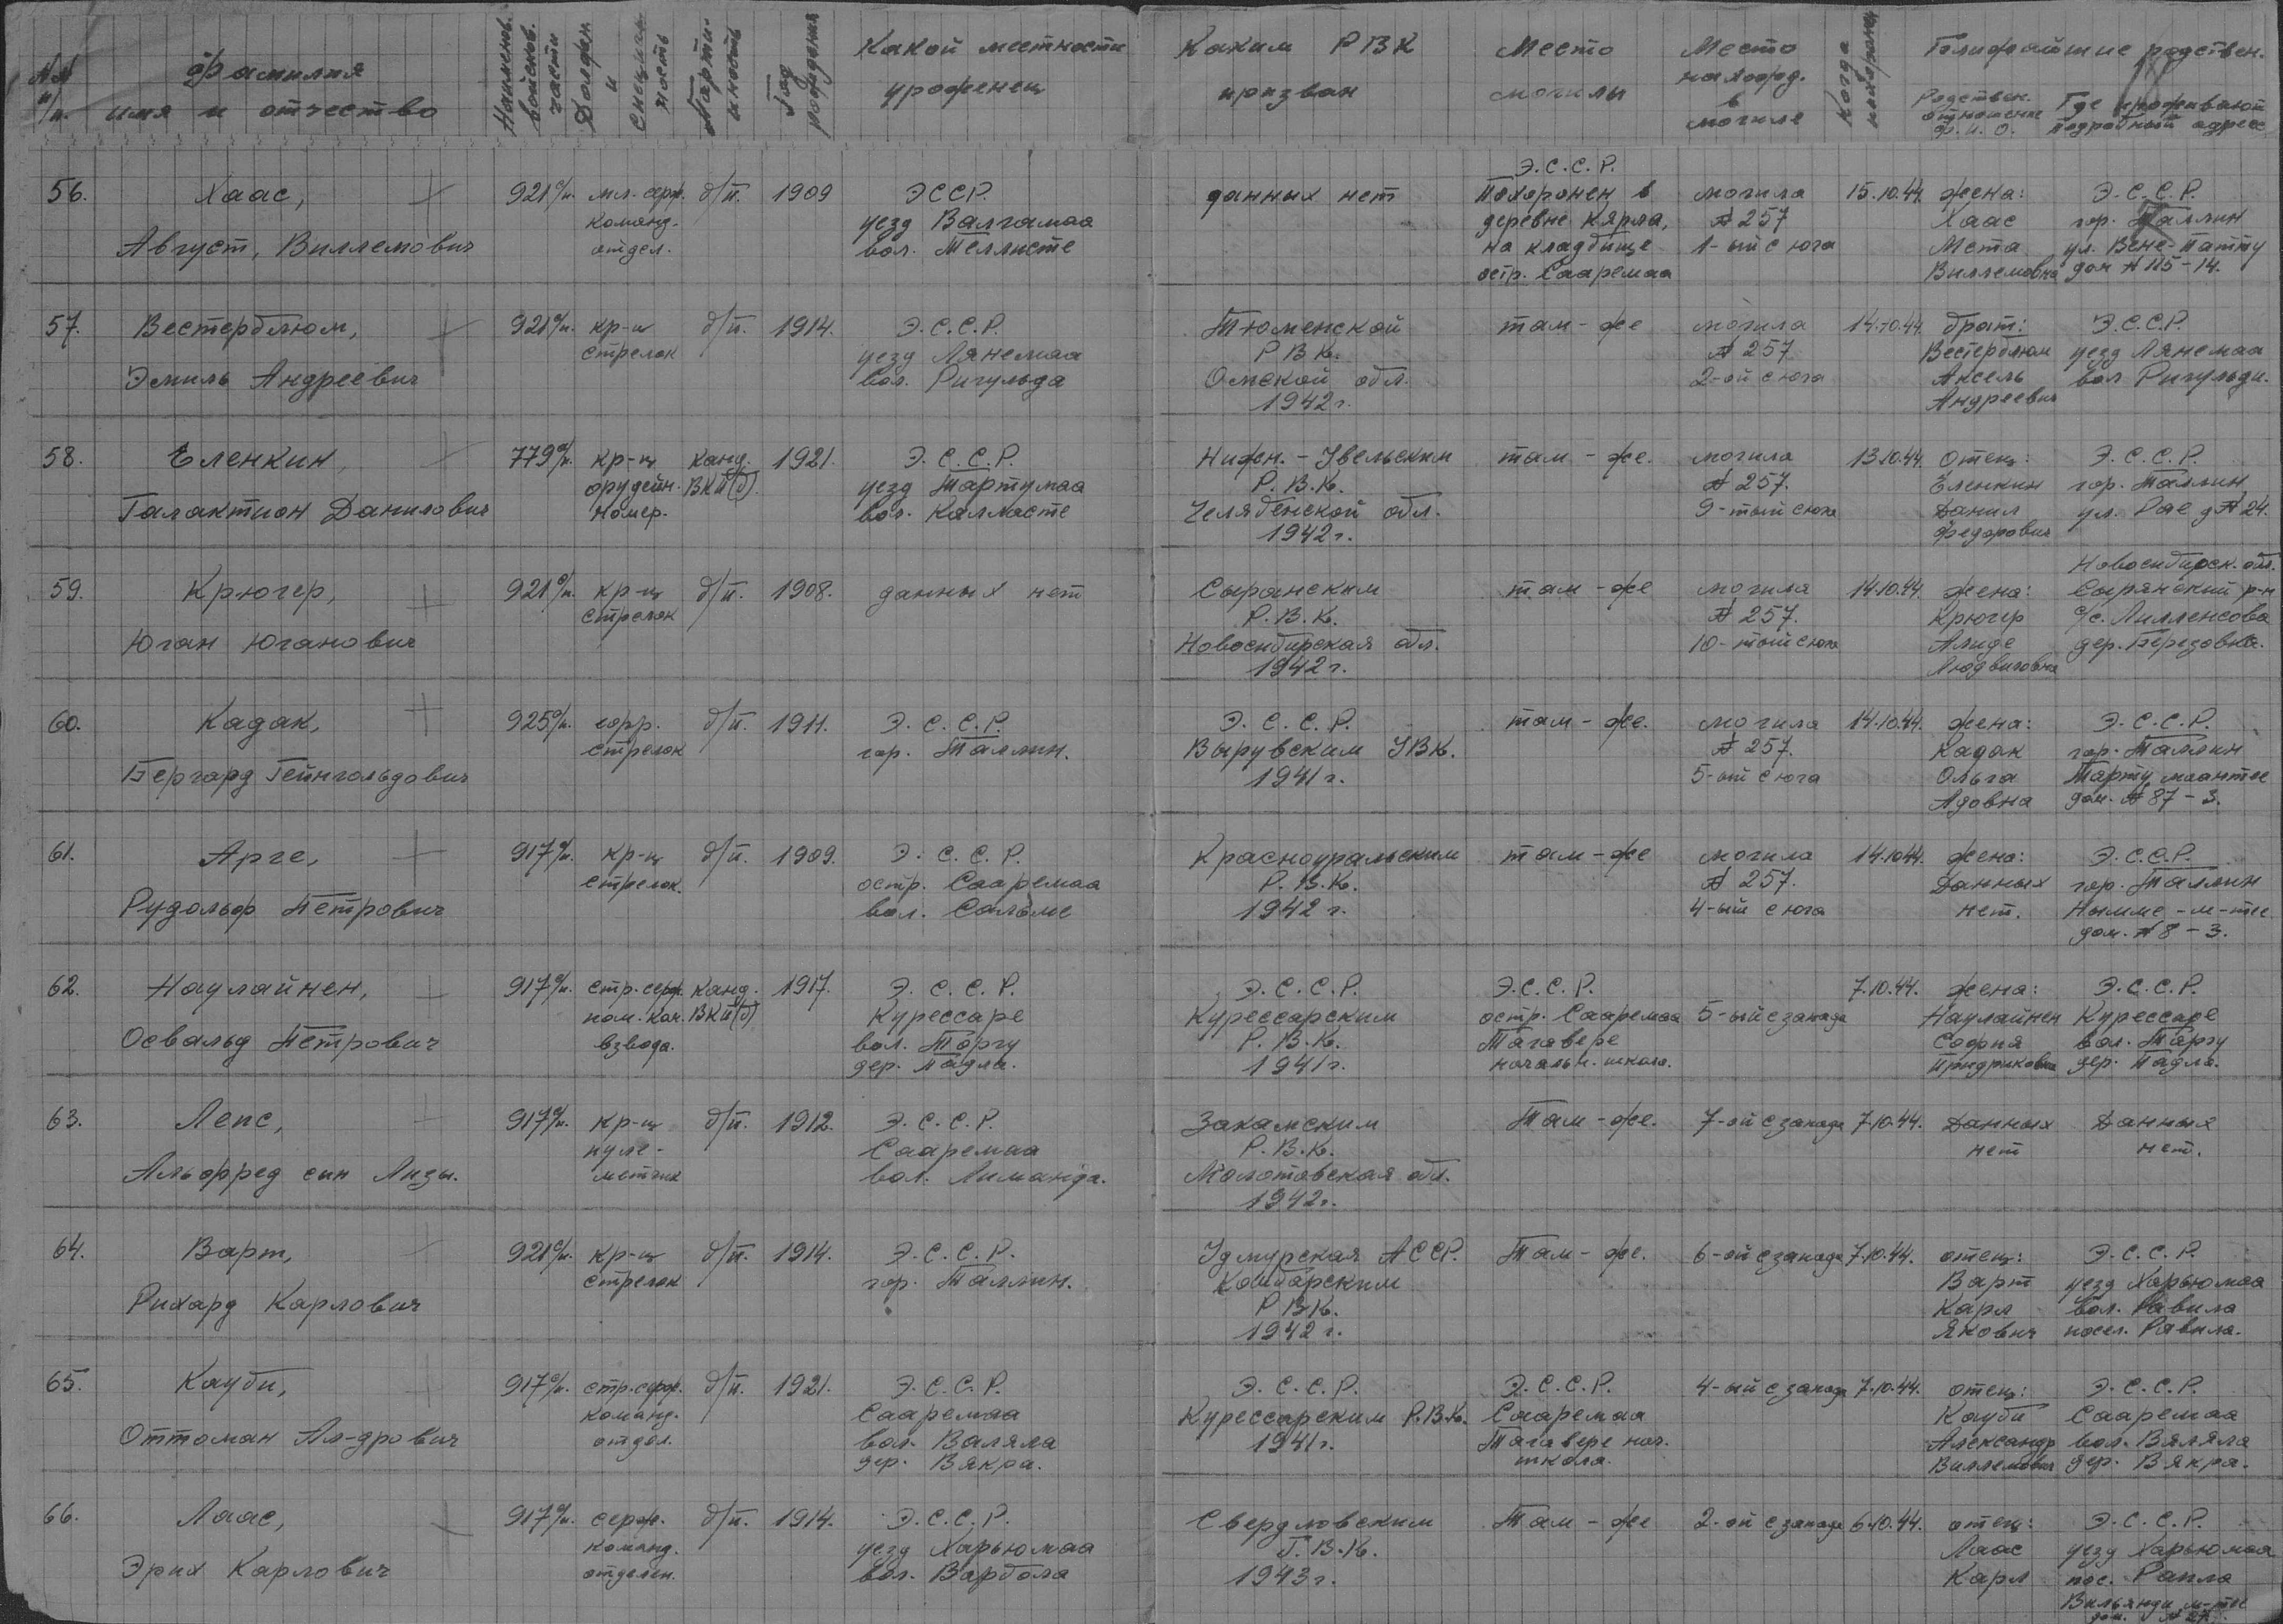 №№ п/п.
Фамилия имя и отчество
Наименов. войсков. части
Должн. и специальность
Партийность
Год рождения
Какой местности уроженец
Каким РВК призван
Место могилы
Место нахожд. в могиле
Когда похоронен
Ближайшие родствен.
Родствен. отношение Ф. И. О.
Где проживают подробный адрес
56.
Хаас,
Август, Виллемович
921 с/п.
мл. серж.
команд.
отдел.
б/п.
1909
ЭССР.
уезд Валгамаа
вол. Теллисте
данных нет
Э.С.С.Р.
Похоронен в
деревне Кярла,
на кладбище
остр. Сааремаа
могила
№ 257
1-ый с юга
15.10.44.
жена:
Хаас
Мета
Виллемовна
Э.С.С.Р.
гор. Таллин
ул. Вене-Татту
дом № 115-14.
57.
Вестерблюм,
Эмиль Андреевич
921 с/п.
кр-ц
стрелок
б/п.
1914.
Э.С.С.Р.
уезд Лянемаа
вол. Ригульда
Тюменской
РВК.
Омской обл.
1942 г.
там-же
могила
№ 257
2-ой с юга
14.10.44.
брат:
Вестерблюм
Аксель
Андреевич
Э.С.С.Р.
уезд Лянемаа
вол. Ригульди.
58.
Еленкин,
Галактион Данилович
779 с/п.
кр-ц
орудейн.
номер.
Канд.
ВКП(б).
1921.
Э.С.С.Р.
уезд Тартумаа
вол. Калласте
Нижн.-Увельским
Р.В.К.
Челябенской обл.
1942 г.
там-же.
могила
№ 257.
9-тый с юга
13.10.44.
Отец:
Еленкин
Данил
Федорович
Э.С.С.Р.
гор. Таллин
ул. Рае д № 24.
59.
Крюгер,
Юган Юганович
921 с/п.
кр-ц
стрелок
б/п.
1908.
данных нет
Сырянским
Р.В.К.
Новосибирская обл.
1942 г.
там-же
могила
№ 257.
10-тый с юга
14.10.44.
жена:
Крюгер
Алиде
Людвиговна
Новосибирск. обл.
Сырянский р-н
с/с. Лилленсова
дер. Березовка.
60.
Кадак,
Бергард Гейнгольдович
925 с/п.
ефр.
стрелок
б/п.
1911.
Э.С.С.Р.
гор. Таллин.
Э.С.С.Р.
Выруским УВК.
1941 г.
там-же.
могила
№ 257.
5-ый с юга
14.10.44.
жена:
Кадак
Ольга
Адовна
Э.С.С.Р.
гор. Таллин
Тарту маантее
дом. № 87-3.
61.
Арге,
Рудольф Петрович
917 с/п.
кр-ц
стрелок.
б/п.
1909.
Э.С.С.Р.
остр. Сааремаа
вол. Сальме
Красноуральским
Р.В.К.
1942 г.
там-же
могила
№ 257.
4-ый с юга
14.10.44.
жена:
Данных
нет.
Э.С.С.Р.
гор. Таллин
Нымме-м-тее
дом. № 8-3.
62.
Наулайнен,
Освальд Петрович
917 с/п.
стр. серж.
пом. ком.
взвода.
Канд.
ВКП(б)
1917.
Э.С.С.Р.
Курессаре
вол. Торгу
дер. Падла.
Э.С.С.Р.
Курессарским
Р.В.К.
1941 г.
Э.С.С.Р.
остр. Сааремаа
Тагавере
начальн. школа.
5-ый с запада
7.10.44.
жена:
Наулайнен
София
Придриковна
Э.С.С.Р.
Курессаре
вол. Торгу
дер. Падла.
63.
Лепс,
Альфред син Лизы.
917 с/п.
кр-ц
пуле-
метчик
б/п.
1912.
Э.С.С.Р.
Сааремаа
вол. Лиманда.
Закамским
Р.В.К.
Молотовская обл.
1942 г.
Там-же.
7-ой с запада
7.10.44.
Данных
нет
Данных
нет.
64.
Варт,
Рихард Карлович
921 с/п.
кр-ц
стрелок
б/п.
1914.
Э.С.С.Р.
гор. Таллин.
Удмурская АССР.
Камбарским
РВК.
1942 г.
Там-же.
6-ой с запада
7.10.44.
отец:
Варт
Карл
Якович
Э.С.С.Р.
уезд Харьюмаа
вол. Равила
посел. Равила.
65.
Кауби,
Оттоман Ал-дрович
917 с/п.
стр. серж.
команд.
отдел.
б/п.
1921.
Э.С.С.Р.
Сааремаа
вол. Валяла
дер. Вякра.
Э.С.С.Р.
Курессарским Р.В.К.
1941 г.
Э.С.С.Р.
Сааремаа
Тагавере нач.
школа.
4-ый с запада
7.10.44.
отец:
Кауби
Александр
Виллемович
Э.С.С.Р.
Сааремаа
вол. Вяляла
дер. Вякра.
66.
Лаас,
Эрих Карлович
917 с/п.
серж.
команд.
отделен.
б/п.
1914.
Э.С.С.Р.
уезд Харьюмаа
вол. Варбола
Свердловским
Г.В.К.
1943 г.
Там-же
2-ой с запада
6.10.44.
отец:
Лаас
Карл
Э.С.С.Р.
уезд Харьюмаа
пос. Рапла
Вильянди м-тее
дом. № 27.